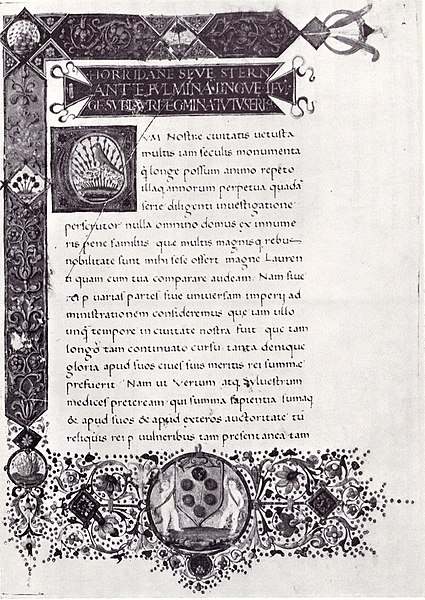 HORRIDA NE SEVE STERN
ANT TE FVLMINA LINGVE
GE SVB LAVRI TEGMINA TVTVS ERIS
QVAM Nostre ciuitatis uetusta
multis iam seculis monumenta
q̃ longe possum animo repeto
illaq; annorum perpetua quadã
serie diligenti inuestigatione
perscrutor nulla omnino domus ex innume
ris pene familiis que multis magnisq; rebus
nobilitate sunt mihi sese offert magne Lauren
ti quam cum tua comparare audeam. Nam siue
rei p. uarias partes siue uniuersam imperij ad
ministrationem consideremus que iam ullo
unq̃ tempore in ciuitate nostra fuit que tam
longo tam continuato cursu tanta denique
gloria apud suos ciues suis meritis rei summæ
prefuerit. Nam ut Verium atq; Syluestrum
medices preteream qui summa sapientia sumaq;
& apud suos & apud exteros auctoritate tũ
reliquis rei p. uulneribus tam presentanea tam